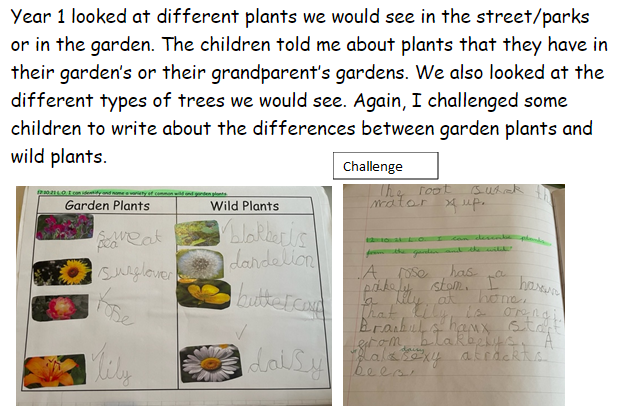 Year 1 looked at different plants we would see in the street/parks
or in the garden. The children told me about plants that they have in
their garden's or their grandparent's gardens. We also looked at the
different types of trees we would see. Again, I challenged some
children to write about the differences between garden plants and
wild plants.
Challenge
L.O. I can identify and name a variety of common wild and garden plants
Garden Plants Wild Plants
sweat
pea
blakberis
sunglower
dandelion
Rose
buttercup
lily
daisy
The root suck
water up.
L.O. I can describe plants
from the garden and the wild
A rose has a
prikely stem. I
a lily at home.
That lily is orang
from blakberys. A
daisy
bees.